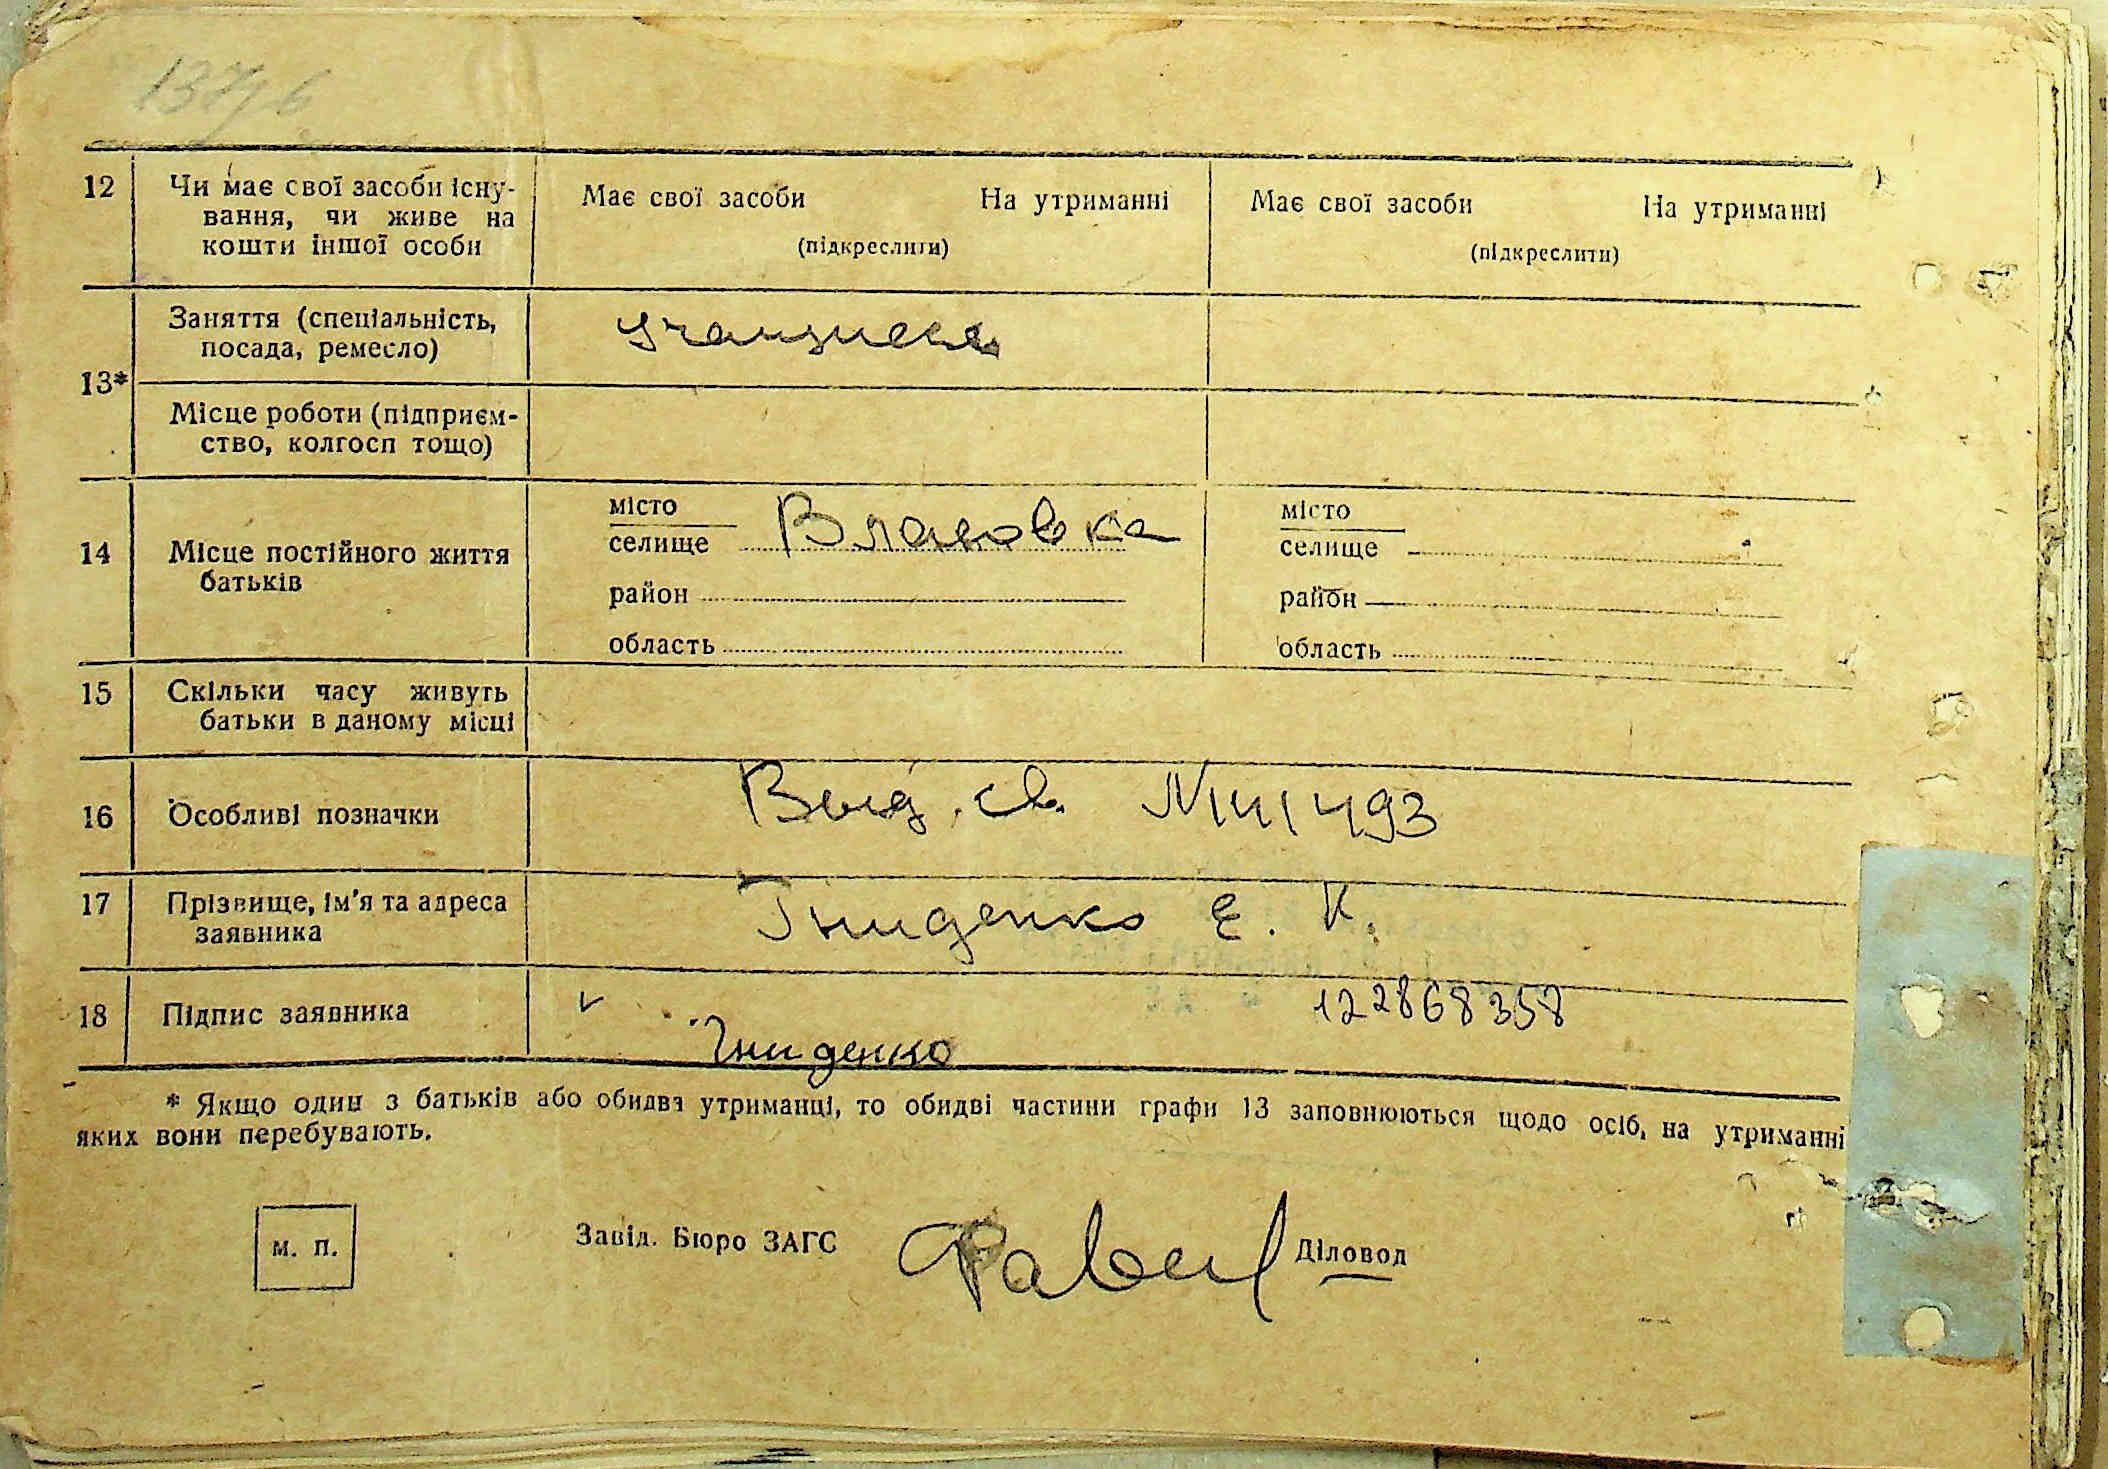 12 Чи має свої засоби існу-
вання, чи живе на
кошти іншої особи
Має свої засоби На утриманні
(підкреслити)
Має свої засоби На утриманні
(підкреслити)
13*
Заняття (спеціальність,
посада, ремесло)
Місце роботи (підприєм-
ство, колгосп тощо)
14 Місце постійного життя
батьків
місто
селище
район
область
місто
селище
район
область
15 Скільки часу живуть
батьки в даному місці
16 Особливі позначки
Выд. св.
17 Прізвище, ім'я та адреса
заявника
Гниденко Е. К.
18 Підпис заявника
122868358
Гниденко
* Якщо один з батьків або обидва утриманці, то обидві частини графи 13 заповнюються щодо осіб, на утриманні
яких вони перебувають.
м. п.
Завід. Бюро ЗАГС
Діловод